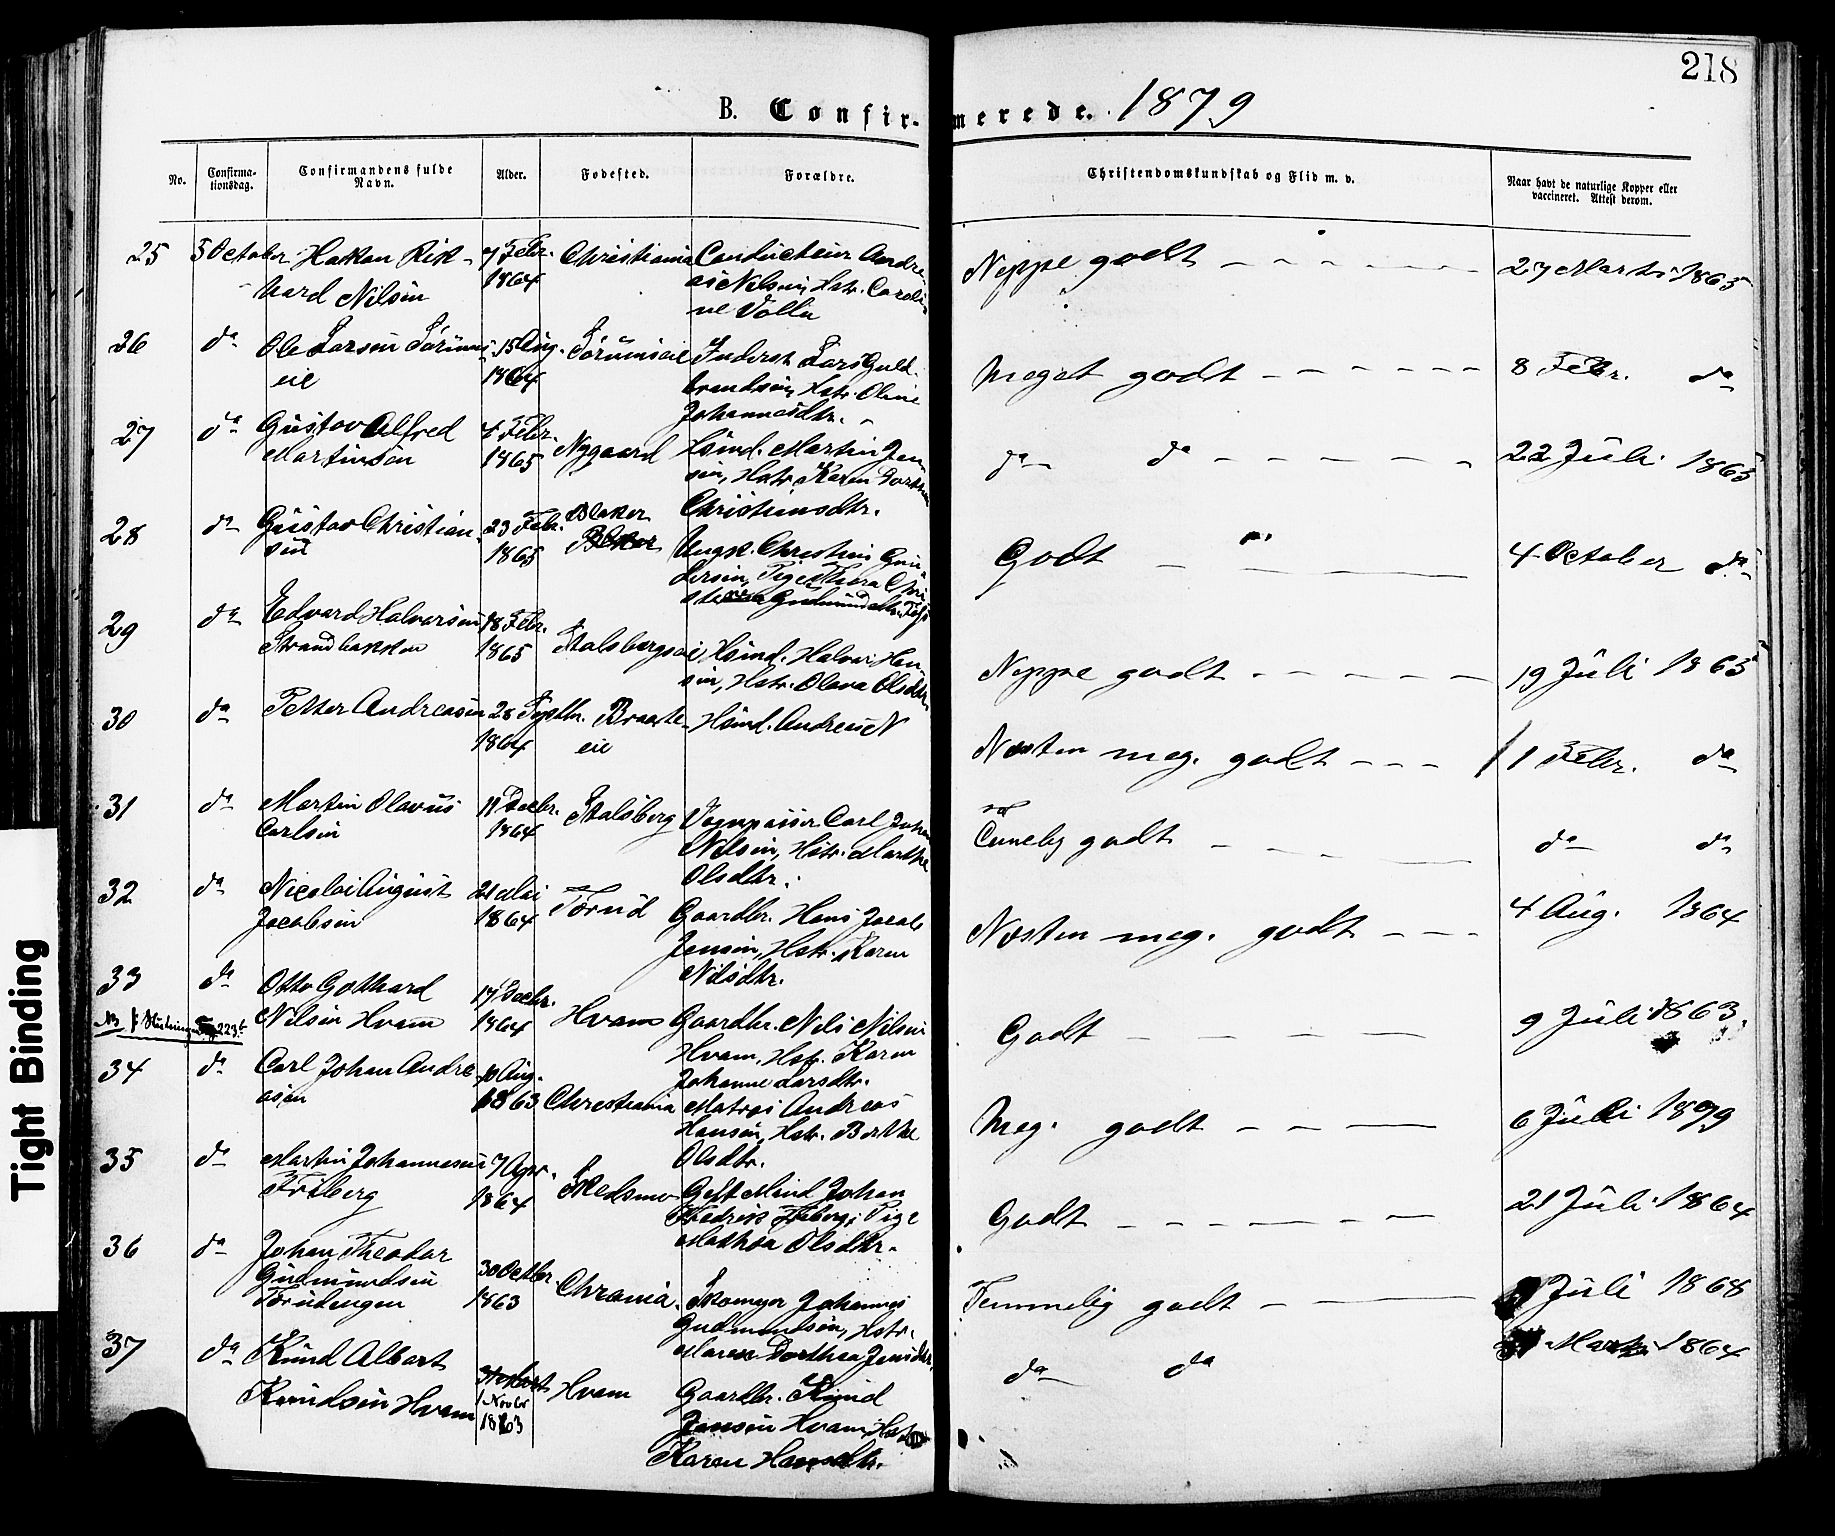 218
B. Confirmerede. 1879
No. Confirmationsdag. Confirmandens fulde Navn. Alder. Fødested. Forældre. Christendomskundskab og Flid m. v. Naar havt de naturlige Kopper eller vaccineret. Attest derom.
25 5 October Hakon Rik-
hard Nilsen
7 Febr. 1864
Christiania
Conducteur Andre
as Nilsen, Hstr. Caroli
ne Volla
Neppe godt
27 Marts 1865
26 do Ole Larsen Sörums
eie
15 Aug. 1864
Sörumseie
Inderst Lars Guld
brandsen, Hstr. Oline
Johannesdtr.
Meget godt
8 Febr. do
27 do Gustav Alfred
Martinsen
4 Febr. 1865
Nygaard
Hsmd. Martin Jen
sen, Hstr. Karen
Christensdtr.
do do
22 Juli 1865
28 do Gustav Christian
sen
23 Febr. 1865
Blaker
Ungk. Christen Gun
dersen, Pige Thora
Godt
4 October do
29 do Edvard Halvorsen
Strandbakken
18 Febr. 1865
Stalsbergseie
Hsmd. Halvor Han
sen, Hstr. Olava Olsdtr
Neppe godt
19 Juli 1865
30 do Petter Andreasen
28 Septbr. 1864
Braate
eie
Hsmd. Andreas N
Næsten meg. godt
1 Febr. do
31 do Martin Olavus
Carlsen
11 Decbr. 1864
Stalsberg
Vognpasser Carl Johan
Nilsen, Hstr. Marthe
Olsdtr.
godt
do do
32 do Nicolai August
Jacobsen
21 Mai 1864
Torud
Gaardbr. Hans Jacob
Jensen, Hstr. Karen
Nilsdtr.
Næsten meg. godt
4 Aug. 1864
33 do Otto Gotthard
Nilsen Hvam
17 Decbr. 1864
Hvam
Gaardbr. Nils Nilsen
Hvam, Hstr. Karen
Johanne Larsdtr.
Godt
9 Juli 1863
NB 223
34 do Carl Johan Andre
asen
10 Aug. 1863
Christiania
Matros Andreas
Hansen, Hstr. Berthe
Olsdtr.
Meg. godt
6 Juli 1879
35 do Martin Johannesen
Friberg
7 Apr. 1864
Skedsmo
Gift Mand Johan
Fredrik Friberg, Pige
Mathea Olsdtr.
Godt
21 Juli 1864
36 do Johan Theodor
Gudmundsen
Torudengen
30 Octbr. 1863
Chrania.
Skomager Johannes
Gudmundsen, Hstr.
Maren Dorthea Jensdtr.
Temmelig godt
Juli 1868
37 do Knud Albert
Knudsen Hvam
1 Novbr 1863
Hvam
Gaardbr. Knud
Jensen Hvam, Hstr
Karen Hansdtr.
do do
Marts 1864
Tight Binding